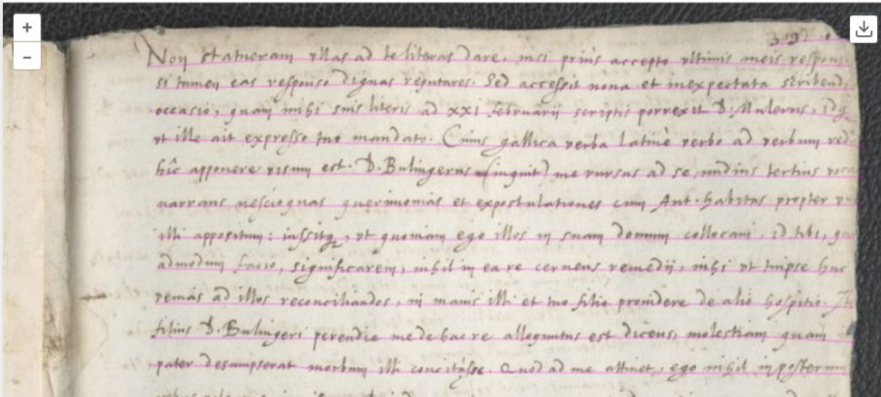 Non statueram ullas ad te literas dare, nisi prius accepto ultimis meis respons
si tamen eas responso dignas reputares. Sed accessit nova et inexpectata scribend
occasio, quam mihi suis literis ad xxi februarii scriptis porrexit D. Mulerus, idq
ut ille ait expresso tuo mandato. Cuius gallica verba latinè verbo ad verbum red
hîc apponere visum est. D. Bulingerus (inquit) me rursus ad se nudius tertius voca
narrans nescio quas querimonias et expostulationes cum Ant. habitas propter
illi appositum: iussitq, ut quoniam ego illos in suam domum collocavi, id tibi, qu
admodum facio, significarem, nihil in ea re cernens remedii, nisi ut tuipse huc
venias ad illos reconciliandos, in mavis illi et tuo filio providere de alio hospitio.
filius D. Bulingeri perendie me de hac re alloquutus est dicens, molestiam quam
pater desumpserat morbum illi concitasse. Quod ad me attinet, ego nihil in posterum